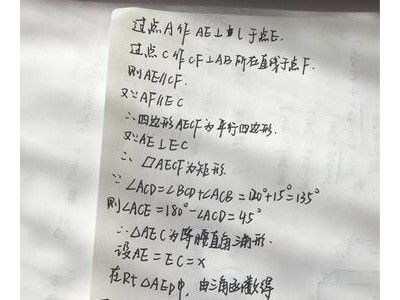 过点A作AE⊥l于点E.
过点C作CF⊥AB所在直线于点F.
则AE∥CF.
又∵AF∥EC
∴四边形AECF为平行四边形.
又∵AE⊥EC
∴ ▱AECF为矩形.
∵∠ACD=∠BCD+∠ACB=120°+15°=135°
则∠ACE=180°-∠ACD=45°
∴△AEC为等腰直角三角形.
设AE=EC=x
在Rt△AED中,由三角函数得